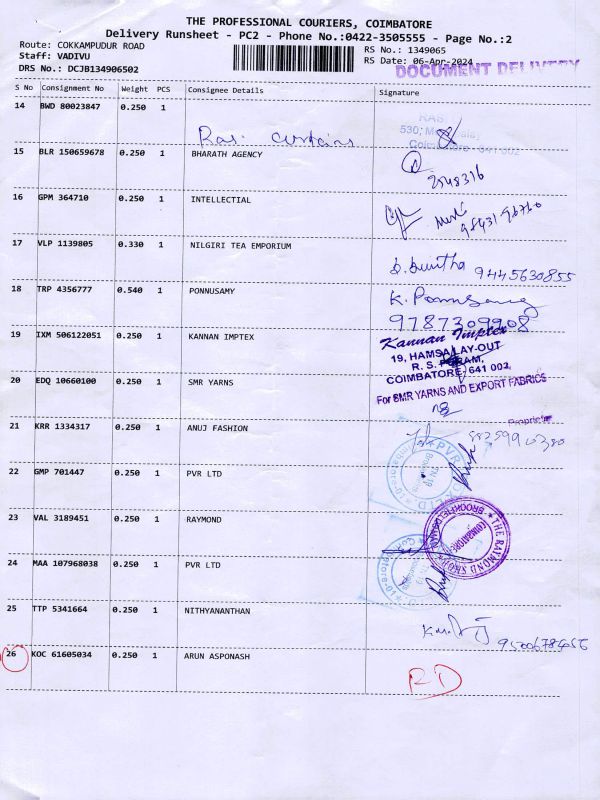 THE PROFESSIONAL COURIERS, COIMBATORE
Delivery Runsheet - PC2 - Phone No.:0422-3505555 - Page No.:2
Route: COKKAMPUDUR ROAD
Staff: VADIVU
DRS No.: DCJB134906502
RS No.: 1349065
RS Date: 06-Apr-2024
DOCUMENT DELIVERY
S No Consignment No Weight PCS Consignee Details Signature
14 BWD 80023847 0.250 1
Rasi curtains
RAS
530, M
Coimbatore - 641 002
15 BLR 150659678 0.250 1 BHARATH AGENCY
2548316
16 GPM 364710 0.250 1 INTELLECTIAL
17 VLP 1139805 0.330 1 NILGIRI TEA EMPORIUM
9445630855
18 TRP 4356777 0.540 1 PONNUSAMY K. Ponnusamy
9787309908
19 IXM 506122051 0.250 1 KANNAN IMPTEX
Kannan Imptex
19, HAMSA LAY-OUT
R. S. PURAM,
COIMBATORE, 641 002,
20 EDQ 10660100 0.250 1 SMR YARNS
For SMR YARNS AND EXPORT FABRICS
Proprietor
21 KRR 1334317 0.250 1 ANUJ FASHION
22 GMP 701447 0.250 1 PVR LTD
PVR
23 VAL 3189451 0.250 1 RAYMOND
THE RAYMOND SHOP
COIMBATORE
24 MAA 107968038 0.250 1 PVR LTD
25 TTP 5341664 0.250 1 NITHYANANTHAN
26 KOC 61605034 0.250 1 ARUN ASPONASH
RD